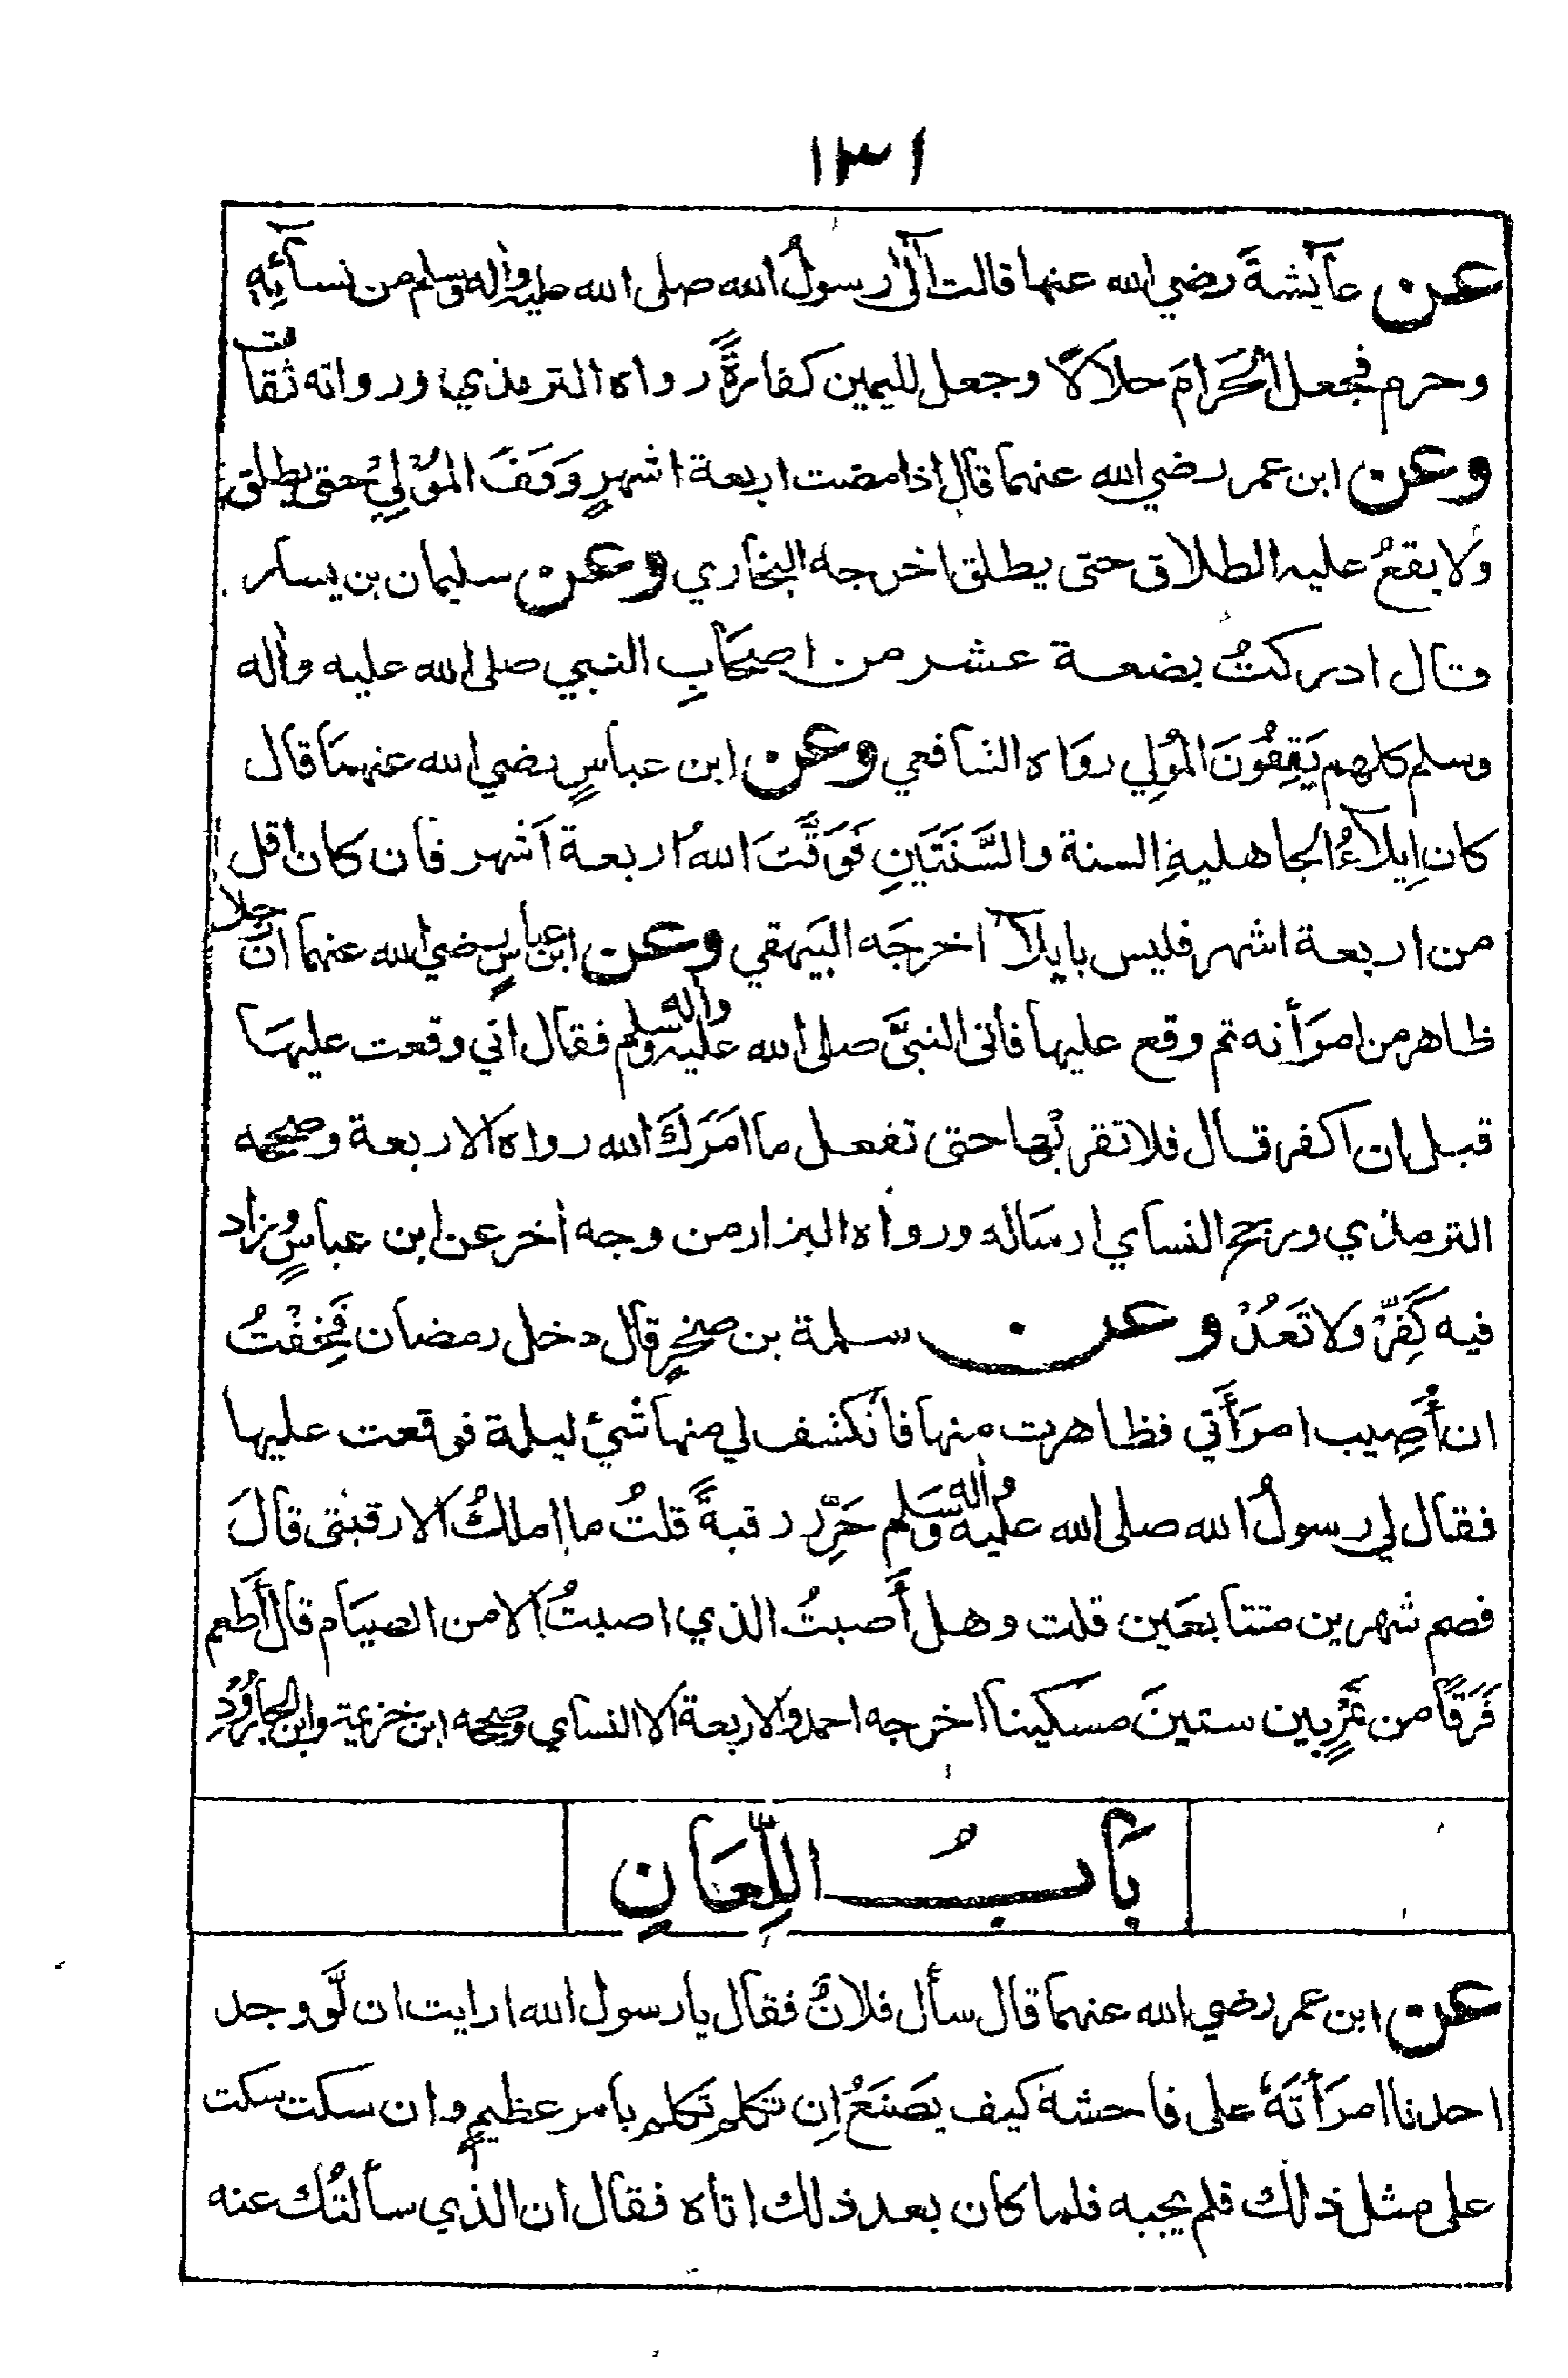 ١٣١
عن عآئشةَ رضي الله عنها قالت آلٰى رسولُ الله صلى الله عليه واٰله وسلم من نسآئِهٖ
وحرم فجعل الحَرامَ حلالًا وجعل لليمين كفارةً رواه الترمذي ورواته ثقات
وعن ابن عمر رضي الله عنهما قال اذا مضت اربعة اشهرٍ وَقَفَ المُوْلِيْ حتى يطلق
ولا يقعُ عليه الطلاق حتى يطلق اخرجه البخاري وعن سليمان بن يسار
قال ادركتُ بضعة عشر من اصحَابِ النبي صلى الله عليه واٰله
وسلم كلهم يَقِفُونَ المُولِي روَاه الشافعي وعن ابن عباسٍ رضي الله عنهمَا قال
كان اِيلآءُ الجاهليةِ السنة والسَّنَتَينِ فَوَقَّتَ اللهُ اربعة اَشهر فان كان اقل
من اربعة اشهر فليس بايلآء اخرجَه البَيهقي وعن ابن عباسٍ رضي الله عنهما انَّ رجلا
ظاهر من امرَأته ثم وقع عليها فاتى النبىَّ صلى الله عليه واٰله وسلم فقال اني وقعت عليهَا
قبل ان اكفر قال فلا تقربْها حتى تفعل ما امَرَكَ الله رواه الاربعة وصححه
الترمذي ورجح النساي ارسَاله ورواه البزار من وجه اٰخر عن ابن عباسٍ وزاد
فيه كَفِّرْ ولا تَعُدْ وعن سلمة بن صخرٍ قال دخل رمضان فَخِفْتُ
ان أُصِيب امرَأَتي فظاهرت منها فانكشف لي منها شئ ليلة فوقعت عليها
فقال لي رسولُ الله صلى الله عليه واٰله وسَلم حَرِّر رقبةً قلتُ ما املكُ الا رقبتى قالَ
فصم شهرين متتابعَين قلت وهل أَصبتُ الذي اصبتُ الا من الصيَام قال أَطعم
فَرَقًا من تَمْرٍ بين ستينَ مسكينا اخرجه احمد والاربعة الا النساي وصححه ابن خزيمة وابن الجارُوْدِ
بَابُ اللِّعَانِ
عن ابن عمر رضي الله عنهما قال سأل فلانٌ فقال يا رسول الله ارايت ان لَّو وجد
احدنا امرَأتَهٗ على فاحشة كيف يَصْنَعُ اِن تَكلم تَكلم بامر عظيمٍ وان سكت سكت
على مثل ذلك فلم يجبه فلما كان بعد ذلك اتاه فقال ان الذي سألتُك عنه